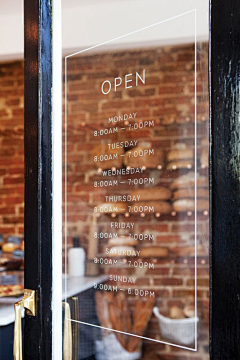 OPEN
MONDAY
8:00AM – 7:00PM
TUESDAY
8:00AM – 7:00PM
WEDNESDAY
8:00AM – 7:00PM
THURSDAY
8:00AM – 7:00PM
FRIDAY
8:00AM – 7:00PM
SATURDAY
8:00AM – 7:00PM
SUNDAY
– 6:00PM